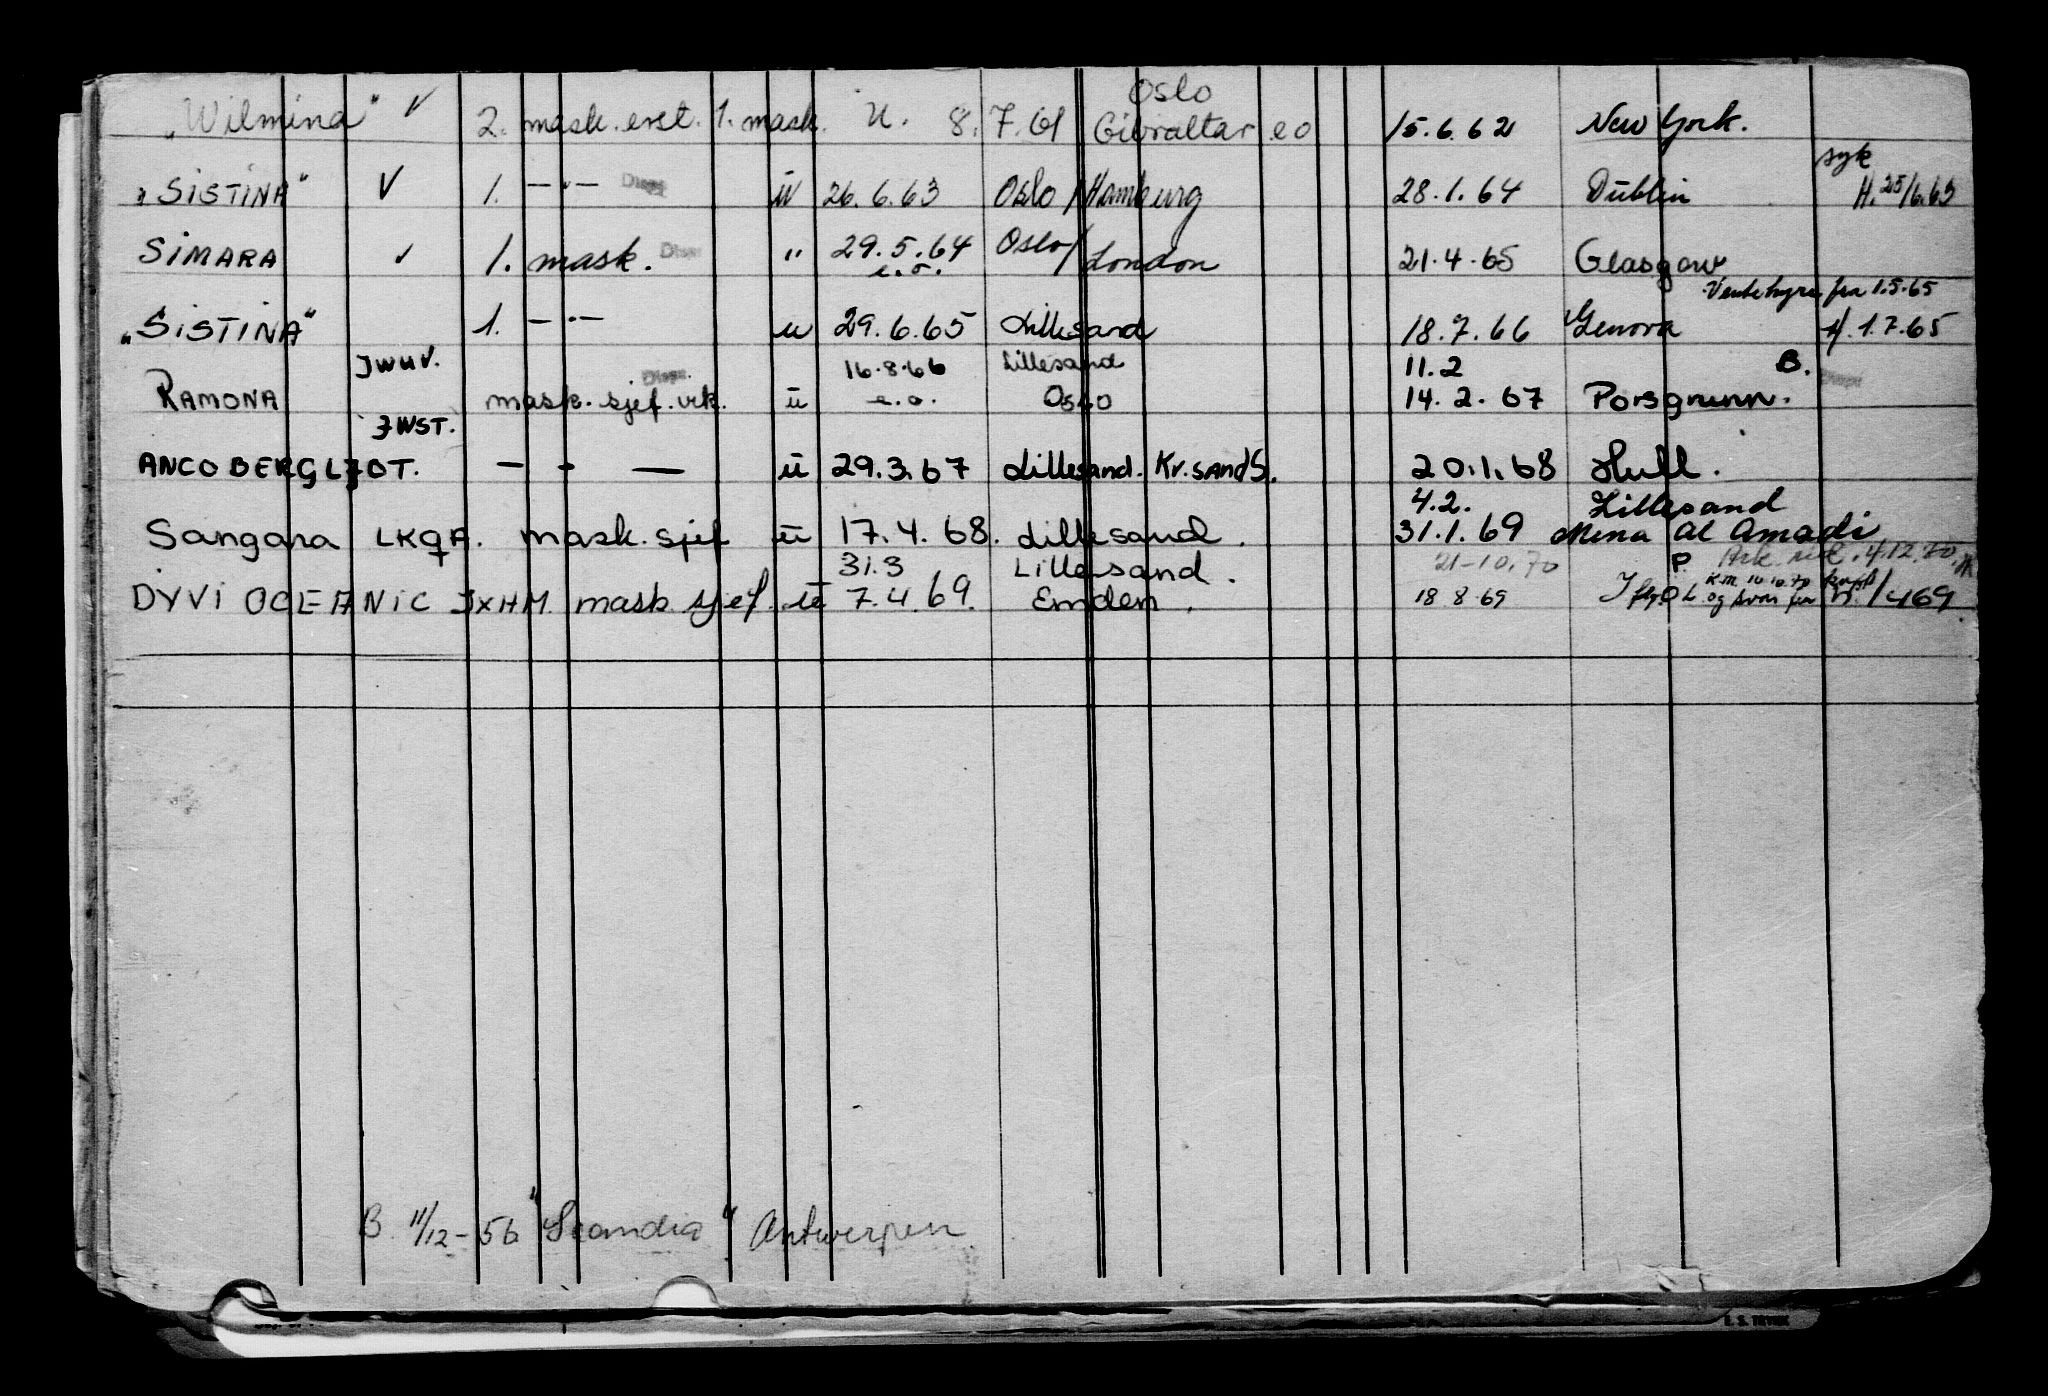 Oslo
„Wilmina" V 2. mask. erst. 1. mask. u. 8.7.61 Gibraltar e o 15.6.62 New York.
syk
„SISTINA" V 1. —„— Disp. ü 26.6.63 Oslo/Hamburg 28.1.64 Dublin H. 25/6.63
SIMARA ✓ 1. mask. Disp. " 29.5.64 Oslo/London 21.4.65 Glasgow
e.o. Ventehyre fra 1.5.65
„SISTINA" 1. —"— u 29.6.65 Lillesand 18.7.66 Genova 1.7.65
JWUV. 16.8.66 Lillesand 11.2 B.
RAMONA mask. sjef. vik. ü e.o. Oslo 14.2.67 Porsgrunn.
JWST.
ANCO BERGLJOT. — - — ü 29.3.67 Lillesand. Kr.sand S. 20.1.68 Hull.
4.2. Lillesand
Sangara LKQA. mask. sjef ü 17.4.68. Lillesand. 31.1.69 Mena Al Amadi
31.3 Lillesand. 21-10.70 P 4.12.70
DYVI OCEANIC JXHM. mask. sjef. ü 7.4.69. Emden. 18.8.69 og svar fra 1469
B. 11/12-56 "Scandia" Antwerpen